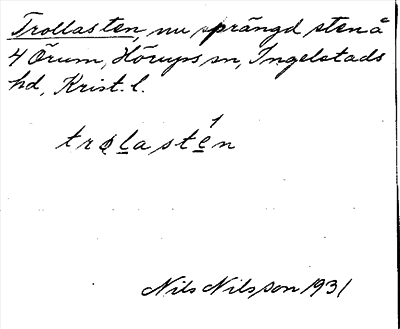 Trollasten, nu sprängd sten å
4 Örum, Hörups sn, Ingelstads
hd, Krist. l.
trolastén
Nils Nilsson 1931